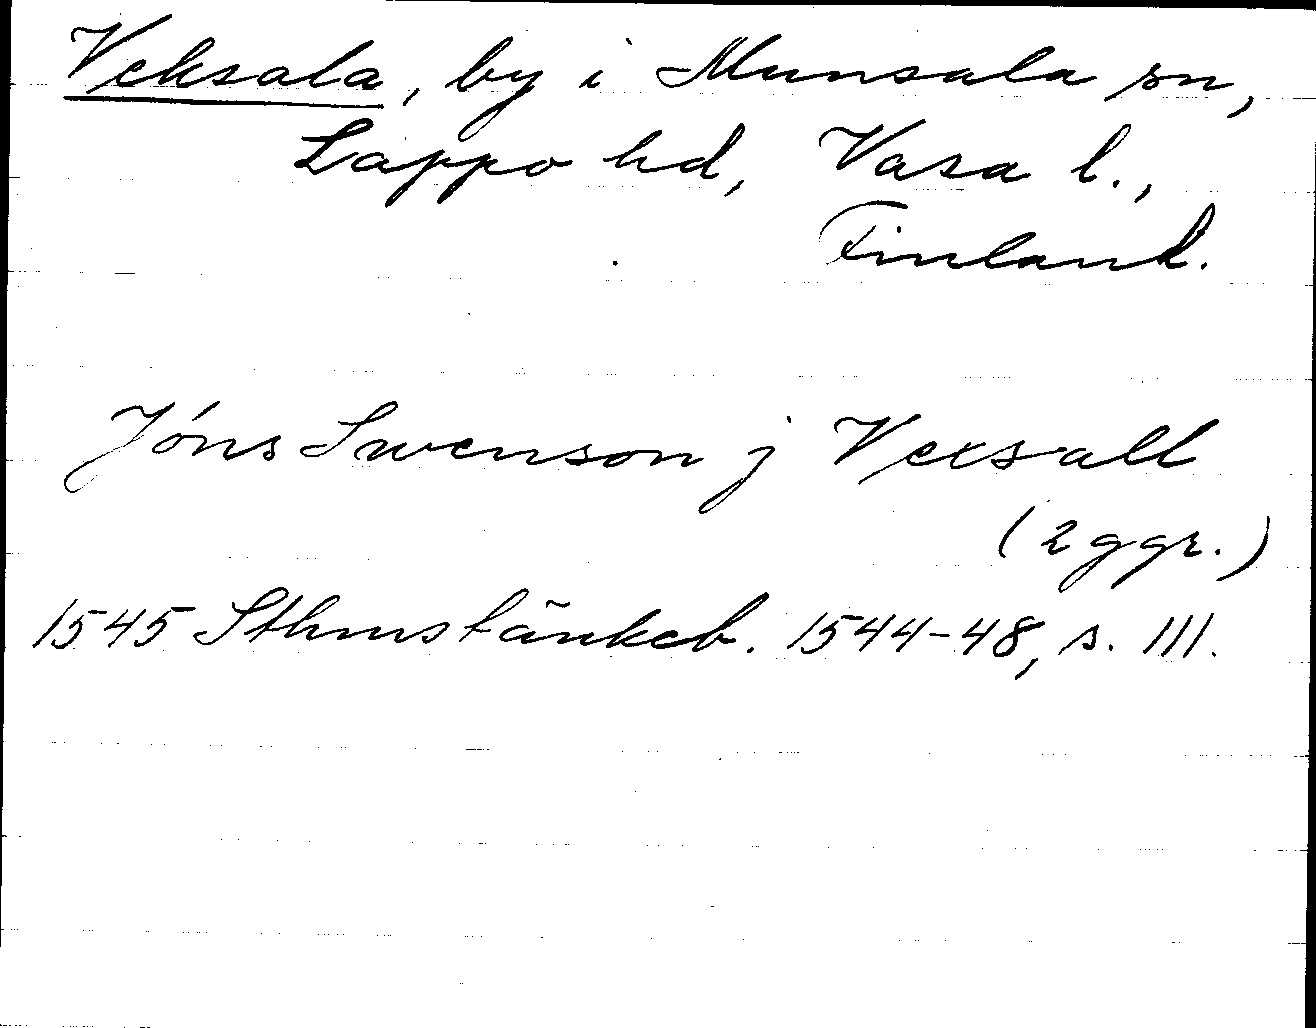 Veksala, by i Munsala sn,
Lappo hd, Vasa l.,
Finland.
Jóns Swenson j Vexsall
(2 ggr.)
1545 Sthms tänkeb. 1544-48, s. 111.